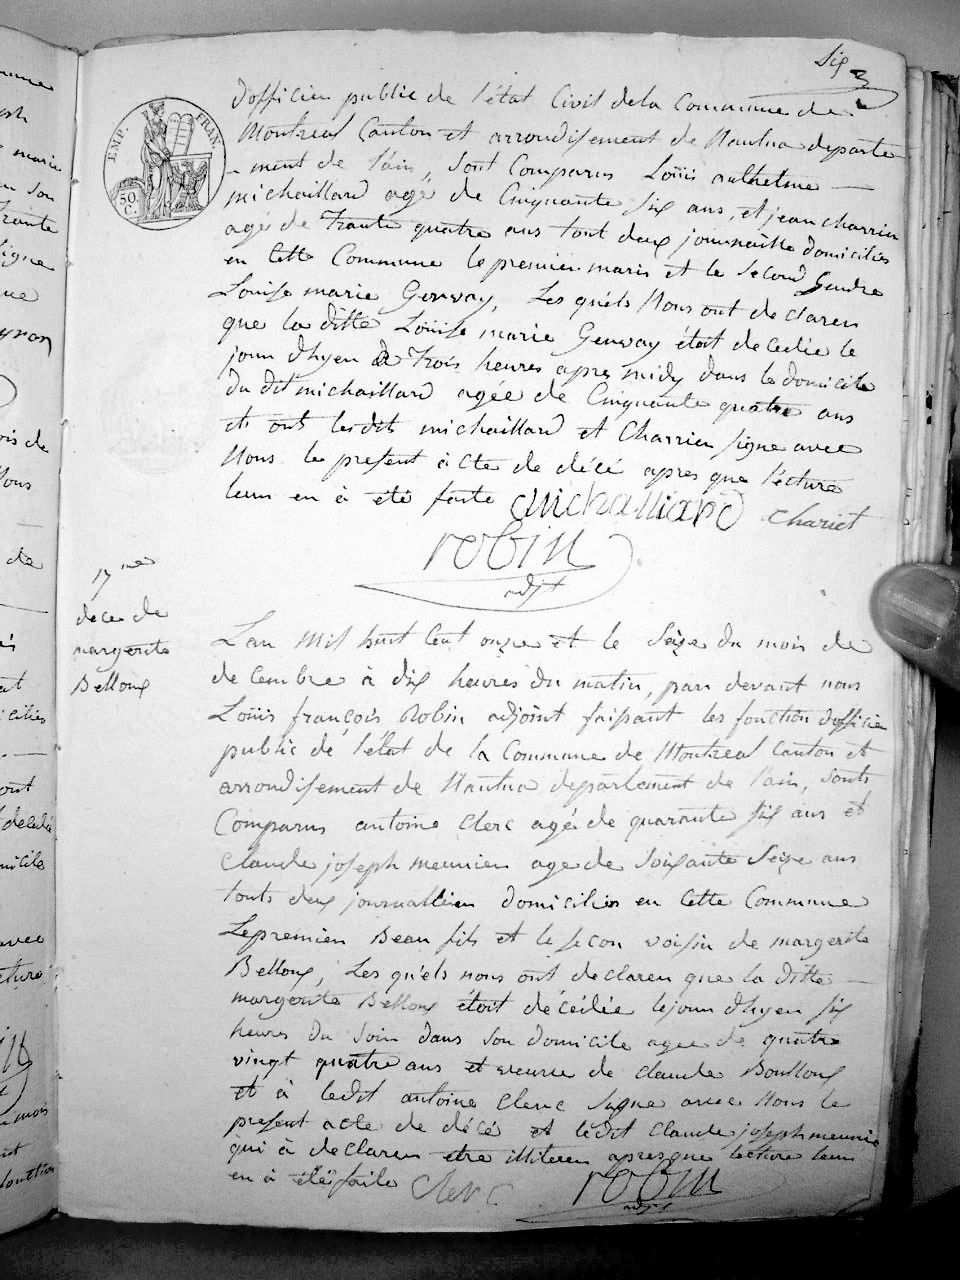 Six
EMP. FRAN.
50.
C.
d'officier public de l'état Civil dela Commune de
Montreal Canton et arrondisement de Nantua departe
-ment de l'ain, Sont Comparus Loüis anthelme
michaillard agé de Cinquante six ans, et jean charrier
agé de Trante quatre ans tout deux journaille domiciliés
en Cette Commune le premier maris et le Second Gendre
Louise marie Genvay, Les quéls Nous ont de claren
que la ditte Loüise marie Genvay étoit decedée le
jour d'hyer à Trois heures apres midy dans le domicile
du dit michaillard agée de Cinquante quatre ans
et ont lesdits michaillard et Charrier signe avec
Nous le present àcte de décé apres que lécture
leur en à eté faite Michalliard chariet
robin
adjt
17me
dece de
margerite
Belloux
L'an mil huit Cent onze et le Seize du mois de
decembre à dix heures du matin, par devant nous
Loüis françois Robin adjoint faissant les fonction d'officier
public de l'état de la Commune de Montreal Canton et
arrondisement de Nantua departement de l'ain, Sonts
Comparus antoine Clerc agé de quarante six ans et
Claude joseph meunier age de Soixante Seize ans
touts deux journallier domiciliés en Cette Commune
Le premier Beau fils et le secon voisin de margerite
Belloux, Les quéls nous ont declaren que la ditte
margerite Belloux étoit décédée lejour d'hyer six
heures du Soir dans son domicile agee de quatre
vingt quatre ans et veuve de claude Boulloux
et à ledit antoine Clerc Signe avec Nous le
present acte de décé et ledit Claude joseph meunier
qui à declaren etre illiteren apresque lecture leur
en à été faite Clerc robin
adjt